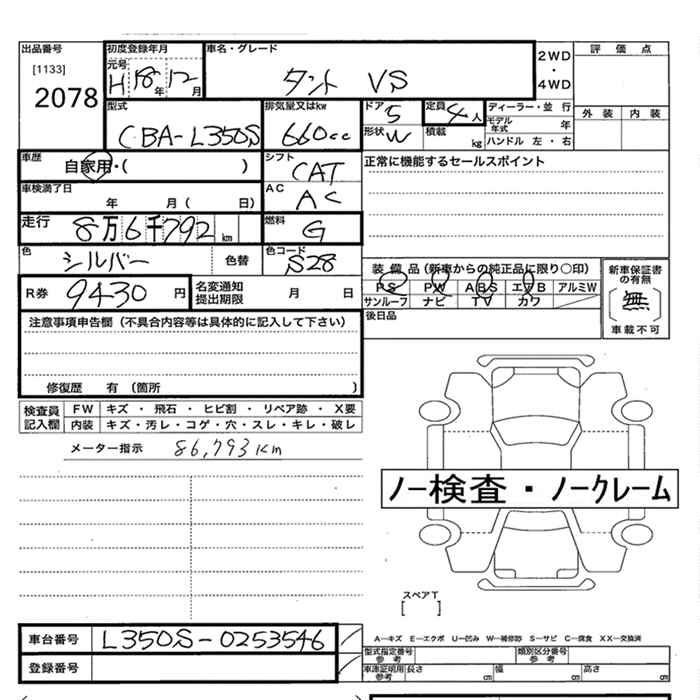 出品番号 初度登録年月 車名・グレード 評価点
[1133] 元号 2WD
2078 H18年12月 タント VS ・
4WD
型式 排気量又はkw ドア 定員 ディーラー・並行 外装 内装
CBA-L350S 660cc 5 4人 モデル年式 年
形状 W 積載 kg ハンドル 左・右
車歴 自家用・( ) シフト CAT 正常に機能するセールスポイント
車検満了日 年 月( 日) AC AC
走行 8万6千792km 燃料 G
色 シルバー 色替 色コード S28
装備品(新車からの純正品に限り○印) 新車保証書の有無
R券 9430円 名変通知提出期限 月 日 PS PW ABS エアB アルミW 無
サンルーフ ナビ TV カワ 車載不可
注意事項申告欄(不具合内容等は具体的に記入して下さい) 後日品
修復歴 有(箇所 )
検査員記入欄 FW キズ・飛石・ヒビ割・リペア跡・X要
内装 キズ・汚レ・コゲ・穴・スレ・キレ・破レ
メーター指示 86,793Km
ノー検査・ノークレーム
スペアT
[ ]
車台番号 L350S-0253546 A―キズ E―エクボ U―凹み W―補修跡 S―サビ C―腐食 XX―交換済
型式指定番号 参考 類別区分番号 参考
登録番号 車庫証明用 参考 長さ cm 幅 cm 高さ cm